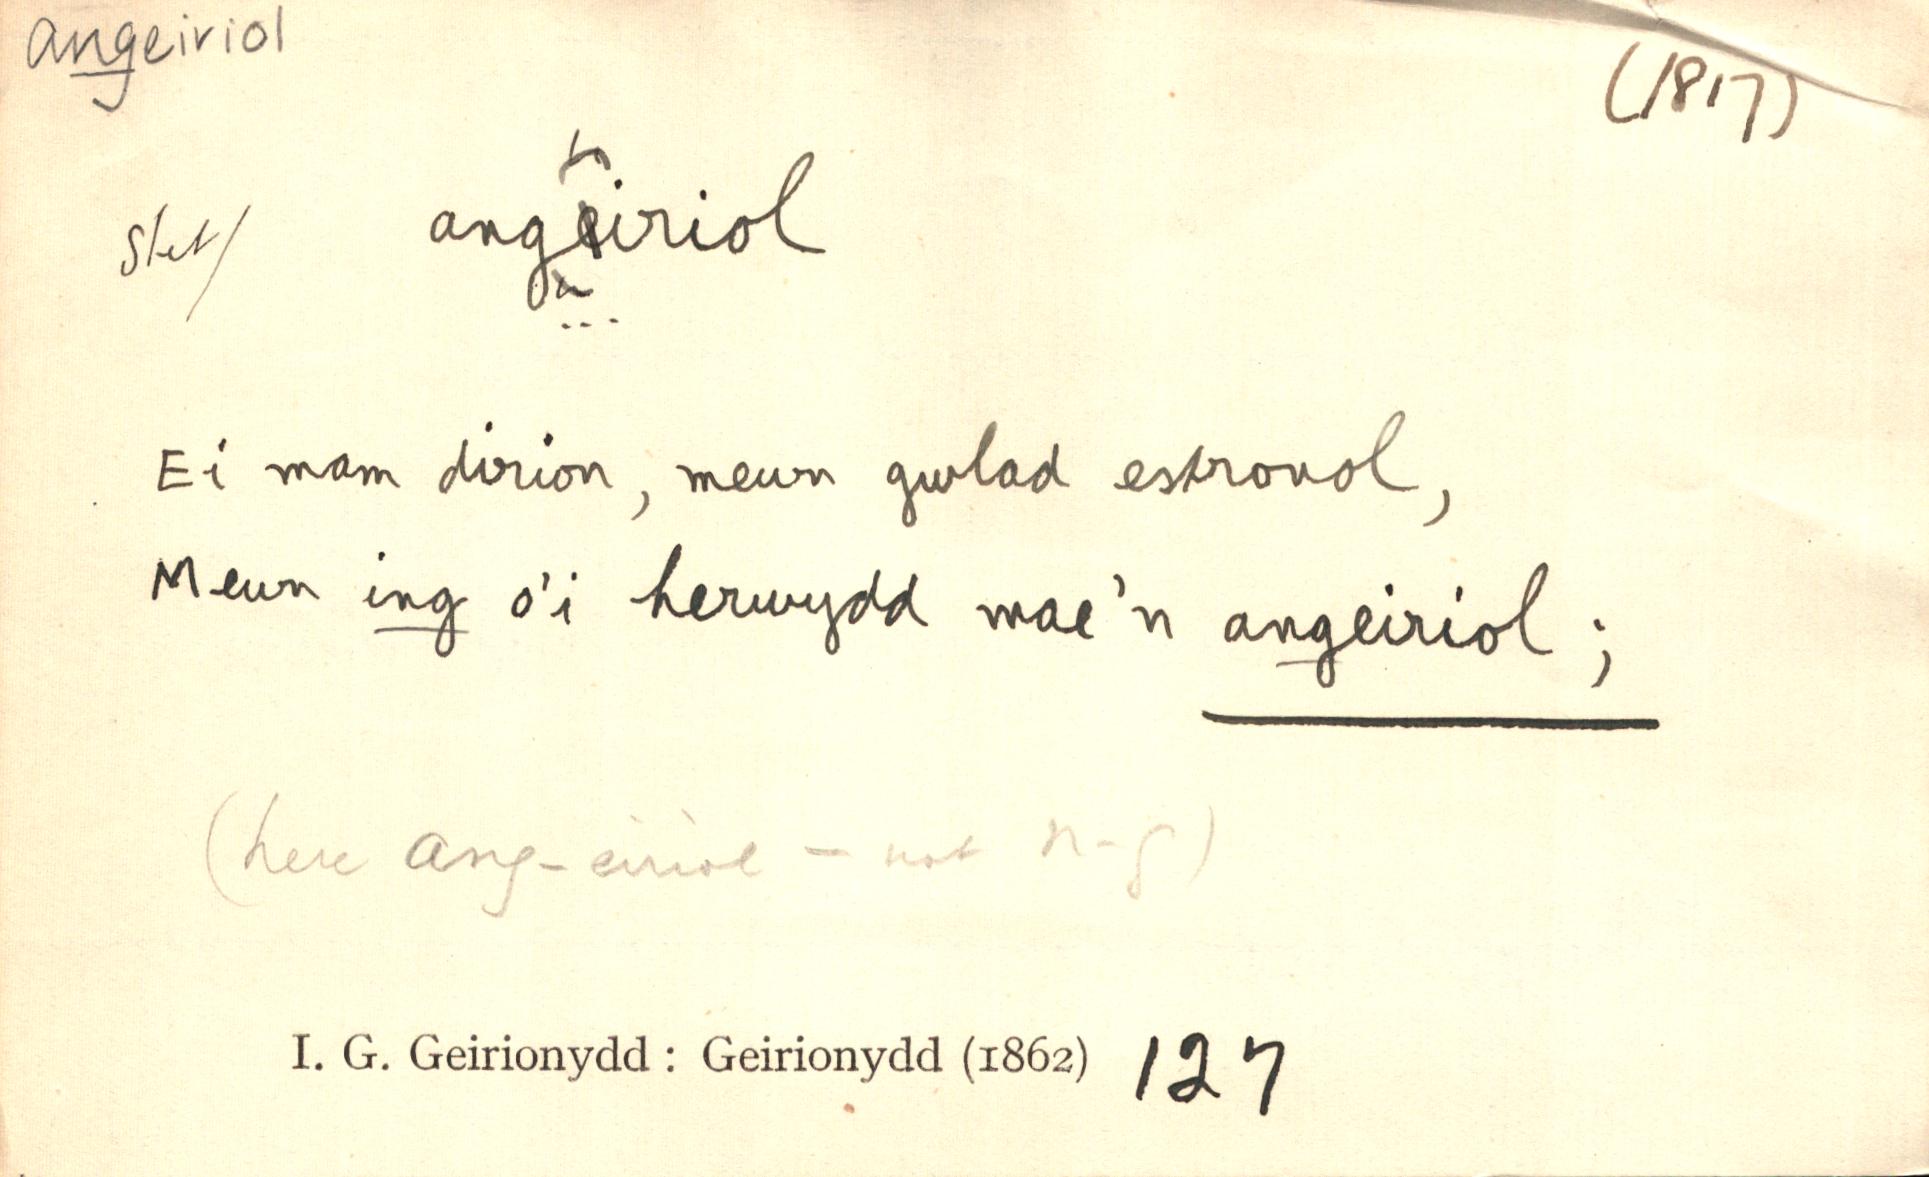 angeiriol
(1817)
stet/ angeiriol
Ei mam dirion, mewn gwlad estronol,
Mewn ing o'i herwydd mae'n angeiriol;
(here ang-eiriol - not n-g)
I. G. Geirionydd: Geirionydd (1862) 127